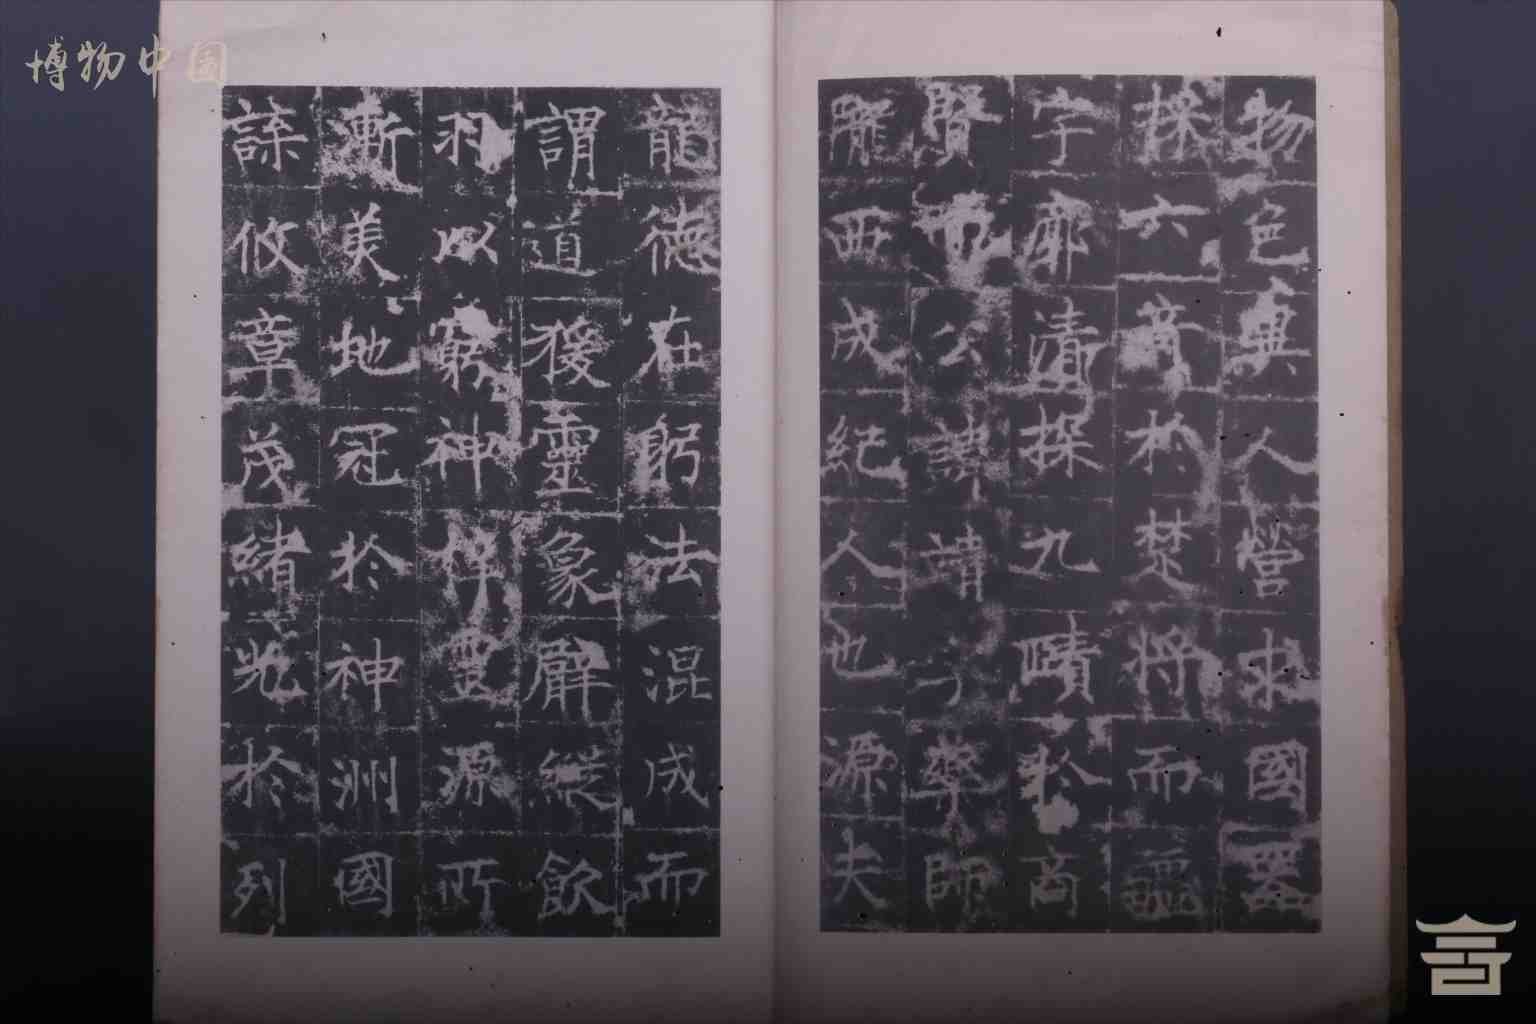 物色異人營求國器
採六奇於楚將而
宇廓清探九賾於商
賢公諱靖字藥師
隴西成紀人也源夫
龍德在躬法混成而
謂道援靈象縱飲
羽以窮神靈源所
漸美地冠於神洲國
諜攸章茂緒光於列
博物中国